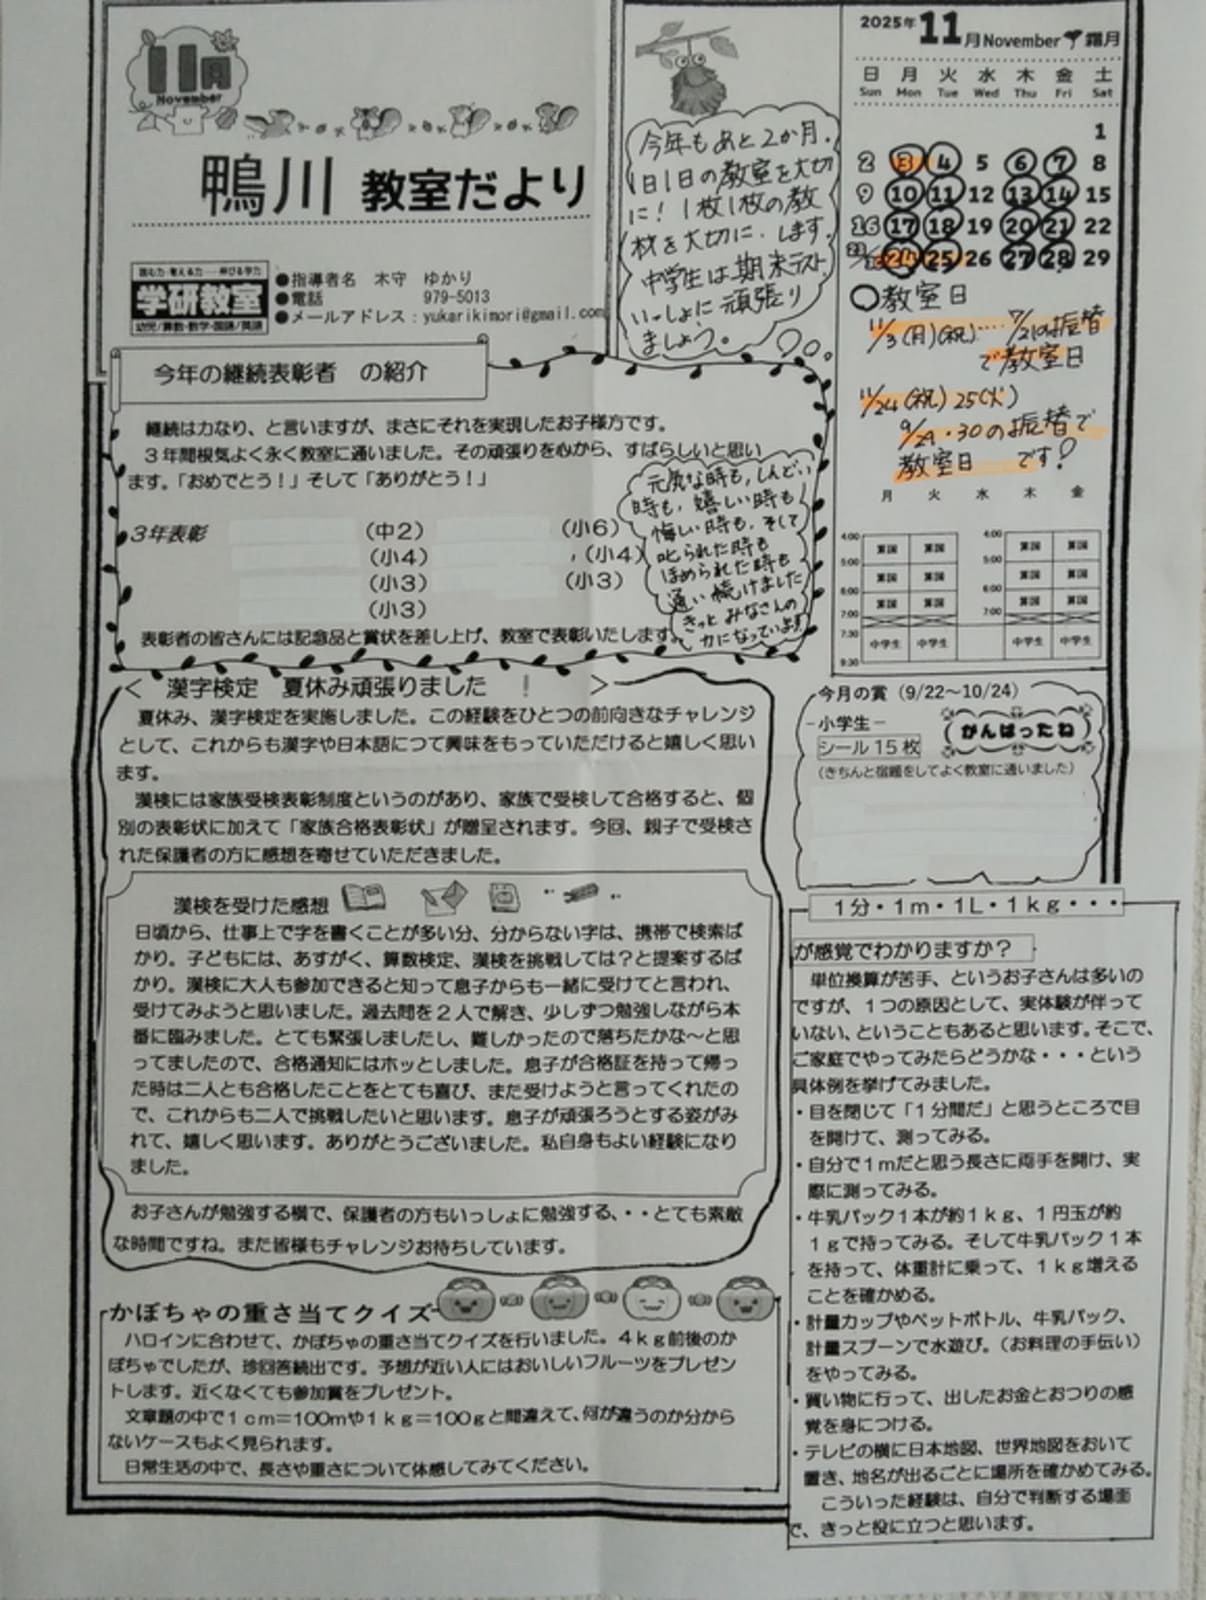 11月
November
鴨川 教室だより
読む力・考える力……伸びる学力
学研教室
幼児/算数・数学・国語/英語
●指導者名 木守 ゆかり
●電話 979-5013
●メールアドレス：yukarikimori@gmail.com
今年もあと2か月.
1日1日の教室を大切
に! 1枚1枚の教
材を大切に.します.
中学生は期末テスト
いっしょに頑張り
ましょう。
2025年 11月 November 霜月
日 月 火 水 木 金 土
Sun Mon Tue Wed Thu Fri Sat
1
2 3 4 5 6 7 8
9 10 11 12 13 14 15
16 17 18 19 20 21 22
23/30 24 25 26 27 28 29
○教室日
11/3(月)(祝)…. 7/21の振替
で教室日
11/24(祝) 25(火)
9/29・30の振替で
教室日 です!
月 火 水 木 金
4:00 算国 算国 4:00 算国 算国
5:00 算国 算国 5:00 算国 算国
6:00 算国 算国 6:00 算国 算国
7:00 7:00
7:30 中学生 中学生 中学生 中学生
9:30
今年の継続表彰者 の紹介
継続は力なり、と言いますが、まさにそれを実現したお子様方です。
３年間根気よく永く教室に通いました。その頑張りを心から、すばらしいと思い
ます。「おめでとう！」そして「ありがとう！」
３年表彰 (中２) (小６)
(小４) , (小４)
(小３) (小３)
(小３)
表彰者の皆さんには記念品と賞状を差し上げ、教室で表彰いたします。
元気な時も,しんどい
時も,嬉しい時も
悔しい時も,そして
叱られた時も
ほめられた時も
通い続けました
きっとみなさんの
力になっています
＜ 漢字検定 夏休み頑張りました ！ ＞
夏休み、漢字検定を実施しました。この経験をひとつの前向きなチャレンジ
として、これからも漢字や日本語につて興味をもっていただけると嬉しく思い
ます。
漢検には家族受検表彰制度というのがあり、家族で受検して合格すると、個
別の表彰状に加えて「家族合格表彰状」が贈呈されます。今回、親子で受検さ
れた保護者の方に感想を寄せていただきました。
漢検を受けた感想
日頃から、仕事上で字を書くことが多い分、分からない字は、携帯で検索ば
かり。子どもには、あすがく、算数検定、漢検を挑戦しては？と提案するば
かり。漢検に大人も参加できると知って息子からも一緒に受けてと言われ、
受けてみようと思いました。過去問を２人で解き、少しずつ勉強しながら本
番に臨みました。とても緊張しましたし、難しかったので落ちたかな～と思
ってましたので、合格通知にはホッとしました。息子が合格証を持って帰っ
た時は二人とも合格したことをとても喜び、また受けようと言ってくれたの
で、これからも二人で挑戦したいと思います。息子が頑張ろうとする姿がみ
れて、嬉しく思います。ありがとうございました。私自身もよい経験になり
ました。
お子さんが勉強する横で、保護者の方もいっしょに勉強する、・・とても素敵
な時間ですね。また皆様もチャレンジお待ちしています。
かぼちゃの重さ当てクイズ
ハロインに合わせて、かぼちゃの重さ当てクイズを行いました。４ｋｇ前後のか
ぼちゃでしたが、珍回答続出です。予想が近い人にはおいしいフルーツをプレゼン
トします。近くなくても参加賞をプレゼント。
文章題の中で１ｃｍ＝100ｍや１ｋｇ＝100ｇと間違えて、何が違うのか分から
ないケースもよく見られます。
日常生活の中で、長さや重さについて体感してみてください。
今月の賞（9/22～10/24）
－小学生－
シール１５枚
がんばったね
（きちんと宿題をしてよく教室に通いました）
１分・１ｍ・１Ｌ・１ｋｇ・・・
が感覚でわかりますか？
単位換算が苦手、というお子さんは多いの
ですが、１つの原因として、実体験が伴って
いない、ということもあると思います。そこで、
ご家庭でやってみたらどうかな・・・という
具体例を挙げてみました。
・目を閉じて「１分間だ」と思うところで目
を開けて、測ってみる。
・自分で１ｍだと思う長さに両手を開け、実
際に測ってみる。
・牛乳パック１本が約１ｋｇ、１円玉が約
１ｇで持ってみる。そして牛乳パック１本
を持って、体重計に乗って、１ｋｇ増える
ことを確かめる。
・計量カップやペットボトル、牛乳パック、
計量スプーンで水遊び。（お料理の手伝い）
をやってみる。
・買い物に行って、出したお金とおつりの感
覚を身につける。
・テレビの横に日本地図、世界地図をおいて
置き、地名が出るごとに場所を確かめてみる。
こういった経験は、自分で判断する場面
で、きっと役に立つと思います。